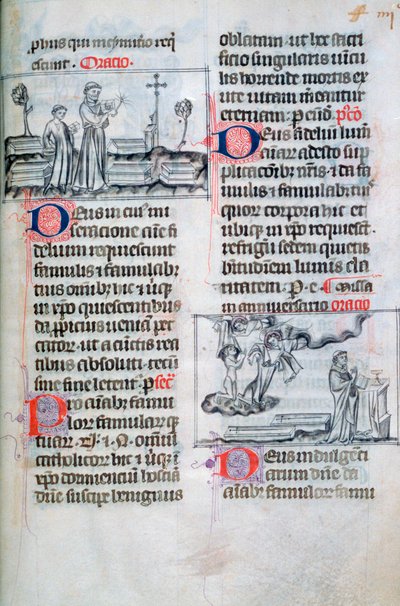 phus qui in cimiterio req
escunt. Oracio.
Deus in cuius mi
seracione anime fi
delium requiescunt
famulis et famulabz
tuis omibz hic et ubicz
in xpo quiescentibus
da propicius veniam pec
cator ut a cunctis rea
tibus absoluti. tecum
sine fine letentur. P secr
Pro animabz famu
lor famularumqz
tuar. N. et N. omium
catholicor hic et ubicz in
xpo dormiencium hostiam
dne suscipe benignus
oblatam. ut hoc sacri
ficio singularis vincu
lis horrende mortis exu
te vitam mereantur
eternam. P eund Pco
Deus fideliu lumen
animar adesto sup
plicacoibz nris. et da fa
mulis et famulabz tuis
quor corpora hic et ubi
in xpo requiescut.
refrigerii sedem quietis
btitudinem luminis cla
ritatem. P. e. Missa
in anniversario oracio
Deus indulgenti
arum dne da
aiabz famulor famu